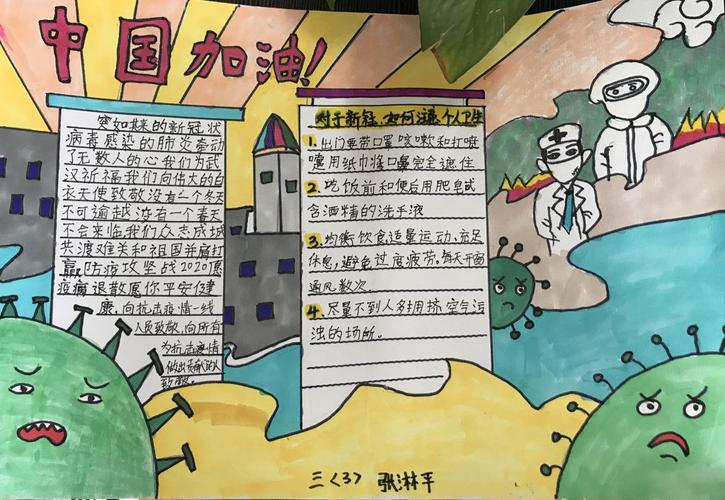 中国加油!
突如其来的新冠状
病毒感染的肺炎牵动
了无数人的心我们为武
汉祈福我们向伟大的白
衣天使致敬没有一个冬天
不可逾越没有一个春天
不会来临我们众志成城
共渡难关和祖国并肩打
赢防疫攻坚战2020愿
疫痛退散愿你平安健
康,向抗击疫情一线
人员致敬,向所有
为抗击疫情
做出贡献的人
致敬。
对于新冠,如何注意个人卫生
1.出门要带口罩咳嗽和打喷
嚏用纸巾将口鼻完全遮住
2.吃饭前和便后用肥皂或
含洒精的洗手液
3.均衡饮食适量运动、充足
休息,避免过度疲劳。每天开窗
通风数次
4.尽量不到人多拥挤空气污
浊的场所。
三<3> 张淋平